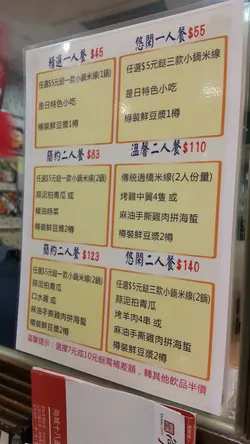 精選一人餐 $45
任選$5元餸一款小鍋米線(1鍋)
是日特色小吃
樽裝鮮豆漿1樽
悠閑一人餐 $55
任選$5元餸三款小鍋米線
是日特色小吃
樽裝鮮豆漿1樽
簡約二人餐 $83
任選$5元餸一款小鍋米線(2鍋)
蒜泥拍青瓜
蠔油時菜
樽裝鮮豆漿2樽
溫馨二人餐 $110
傳統過橋米線(2人份量)
烤雞中翼4隻 或
麻油手撕雞肉拼海蜇
樽裝鮮豆漿2樽
簡約三人餐 $123
任選$5元餸三款小鍋米線(2鍋)
蒜泥拍青瓜
口水雞 或
麻油手撕雞肉拼海蜇
樽裝鮮豆漿2樽
悠閑二人餐 $140
任選$5元餸三款小鍋米線(2鍋)
蒜泥拍青瓜
烤羊肉4串 或
麻油手撕雞肉拼海蜇
樽裝鮮豆漿2樽
溫馨提示：選擇7元或10元餸需補差額，轉其他飲品半價